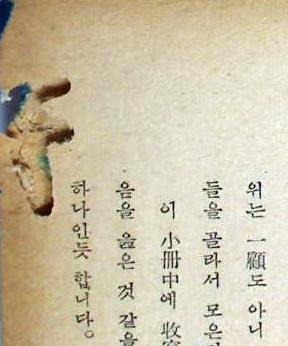 위는 一顧도 아니
들을 골라서 모은
이 小冊中에 收
음을 읊은 것 같을
하나인듯 합니다。